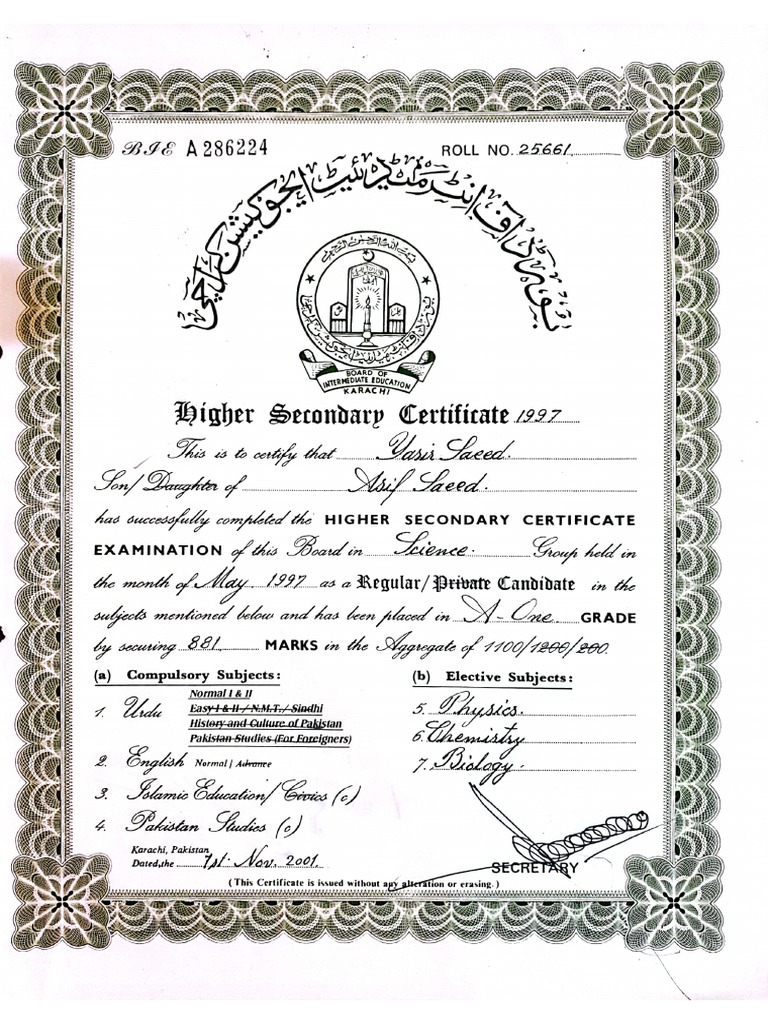 BIE A 286224
ROLL NO. 25661
بورڈ آف انٹرمیڈیٹ ایجوکیشن کراچی
BOARD OF
INTERMEDIATE EDUCATION
KARACHI
Higher Secondary Certificate 1997
This is to certify that Yasir Saeed.
Son/ Daughter of Asif Saeed.
has successfully completed the HIGHER SECONDARY CERTIFICATE
EXAMINATION of this Board in Science. Group held in
the month of May. 1997 as a Regular/ Private Candidate in the
subjects mentioned below and has been placed in A-One GRADE
by securing 881 MARKS in the Aggregate of 1100/1200/200.
(a) Compulsory Subjects:
Normal I & II
1. Urdu Easy I & II / N.M.T./ Sindhi
History and Culture of Pakistan
Pakistan Studies (For Foreigners)
2. English Normal / Advance
3. Islamic Education/ Civics (c)
4. Pakistan Studies (c)
(b) Elective Subjects:
5. Physics.
6. Chemistry
7. Biology.
Karachi, Pakistan
Dated, the 1st. Nov. 2001.
SECRETARY
(This Certificate is issued without any alteration or erasing.)